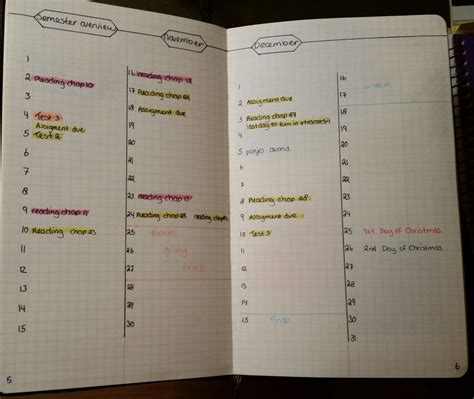 Semester overview
November
1
2 Reading chap 10
3
4 Test 3
Assigment due
5 Test 2
6
7
8
9 reading chap 11
10 Reading chap 23
11
12
13
14
15
16 reading chap 12
17 Reading chap
18 Assigment due
19
20
21
22
23 reading chap 13
24 Reading chap 25 reading chap
25 thanks
26 giving
27 recess
28
29
30
5
December
1
2 Assigment due
3 Reading chap
last day to turn in
4
5
6
7
8 Reading chap
9 Assigment due
10 Test 3
11
12
13
14
15 finals
16
17 week
18
19
20
21
22
23
24
25 1st Day of Christmas
26 2nd Day of Christmas
27
28
29
30
31
6